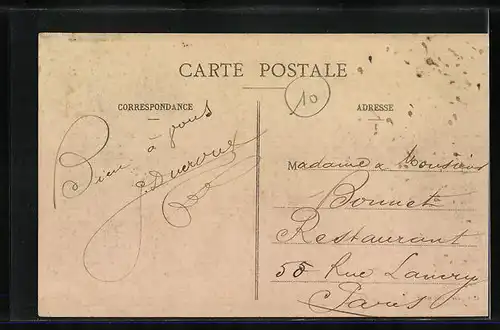 CARTE POSTALE
10
CORRESPONDANCE
ADRESSE
Bien à vous
Madame & Monsieur
Bonnet
Restaurant
55 Rue Lancry
Paris